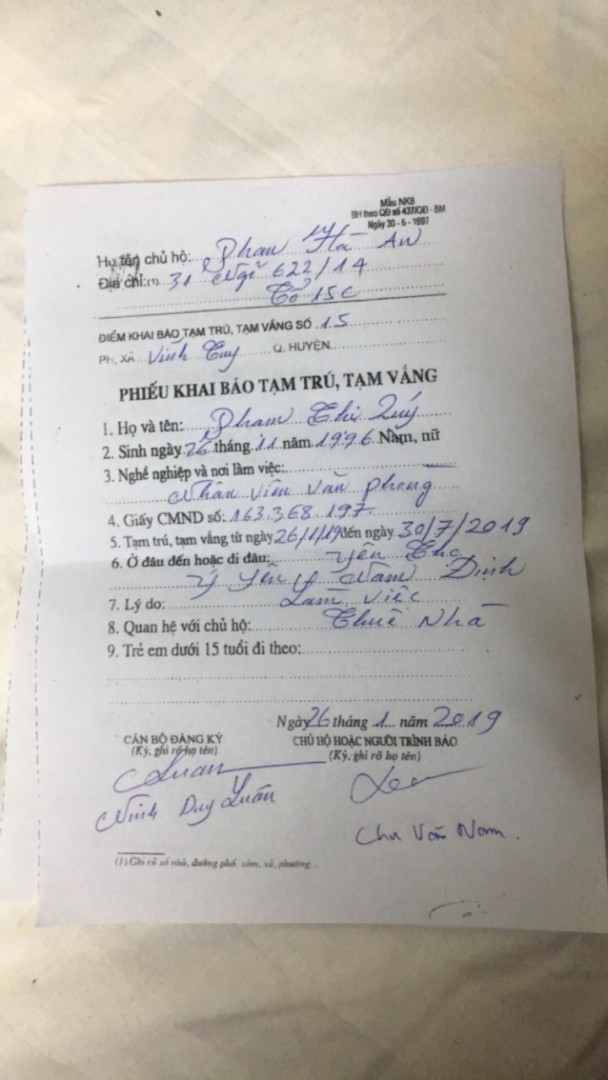 Mẫu NK8
BH theo QĐ số 437/QĐ - BM
Ngày 30 - 6 - 1997
Họ tên chủ hộ: Phan Hà An
Địa chỉ:(1) 31 Ngõ 622/14
Tổ 15c
ĐIỂM KHAI BÁO TẠM TRÚ, TẠM VẮNG SỐ 15
PH, XÃ Vĩnh Tuy Q. HUYỆN
PHIẾU KHAI BÁO TẠM TRÚ, TẠM VẮNG
1. Họ và tên: Phạm Thị Quý
2. Sinh ngày 26 tháng 11 năm 1996 Nam, nữ
3. Nghề nghiệp và nơi làm việc:
Nhân viên văn phòng
4. Giấy CMND số: 163.368.197
5. Tạm trú, tạm vắng từ ngày 26/1/19 đến ngày 30/7/2019
6. Ở đâu đến hoặc đi đâu: Yên Thọ
Ý Yên Nam Định
7. Lý do: Làm việc
8. Quan hệ với chủ hộ: Thuê Nhà
9. Trẻ em dưới 15 tuổi đi theo:
Ngày 26 tháng 1 năm 2019
CÁN BỘ ĐĂNG KÝ CHỦ HỘ HOẶC NGƯỜI TRÌNH BÁO
(Ký, ghi rõ họ tên) (Ký, ghi rõ họ tên)
Luân
Ninh Duy Luân
Chu Văn Nam
(1) Ghi rõ số nhà, đường phố, xóm, xã, phường...